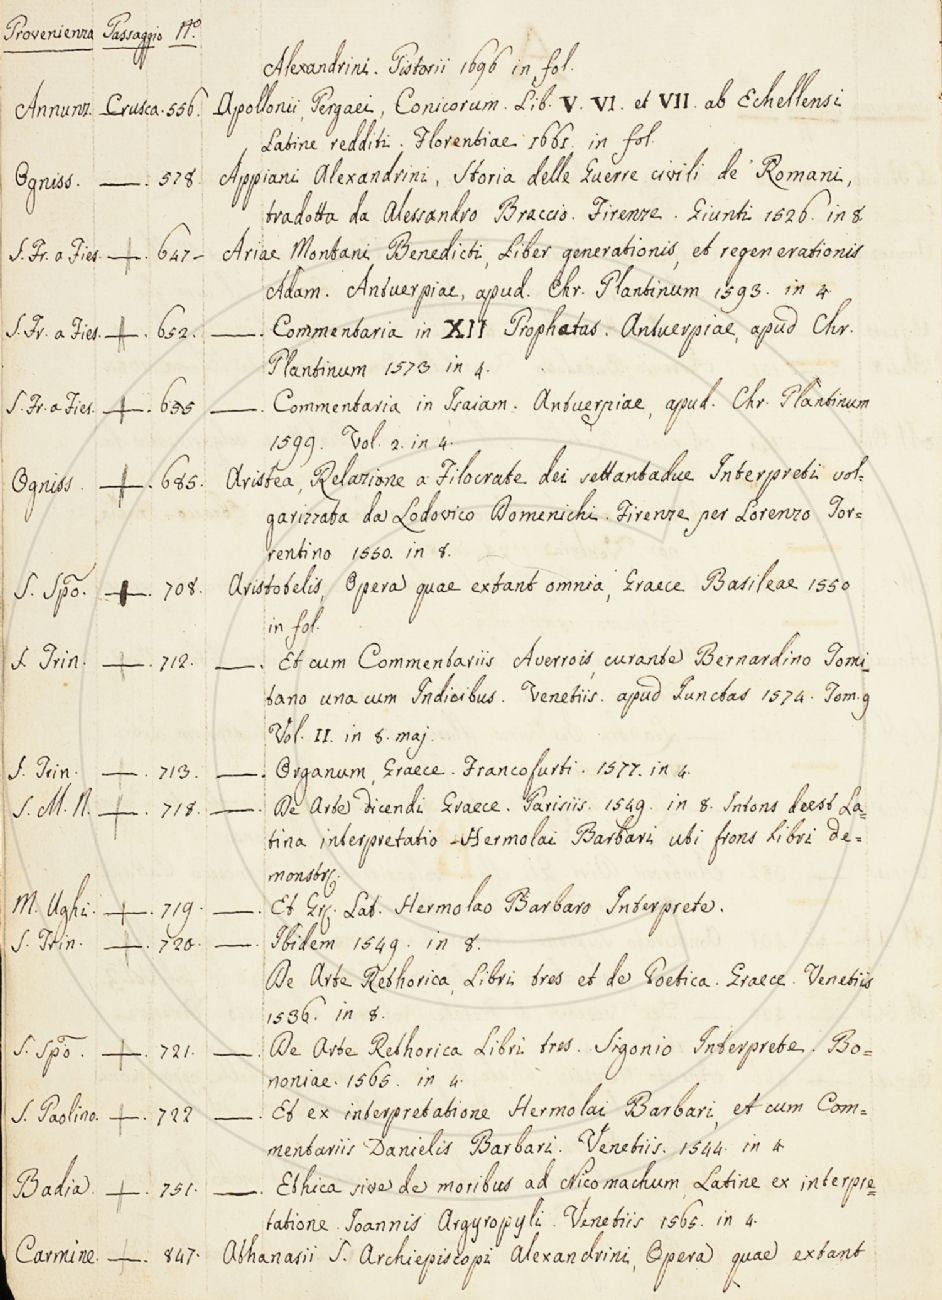 Provenienza Passaggio Nº.
Alexandrini. Pistorii 1696 in fol.
Annunz. Crusca. 556. Apollonii Pergaei, Conicorum. Lib. V. VI. et VII. ab Echellensi
Latine redditi. Florentiae 1661. in fol.
Ogniss. —. 578. Appiani Alexandrini, Storia delle Guerre civili de' Romani,
tradotta da Alessandro Braccio. Firenze. Giunti 1526. in 8.
S. Fr. a Fies. —. 647- Ariae Montani Benedicti, Liber generationis, et regenerationis
Adam. Antuerpiae, apud. Chr. Plantinum 1593. in 4
S. Fr. a Fies. —. 652. —. Commentaria in XII Prophetas. Antuerpiae, apud Chr.
Plantinum 1573 in 4.
S. Fr. a Fies. —. 655 —. Commentaria in Isaiam. Antuerpiae, apud. Chr. Plantinum
1599. Vol. 2. in 4.
Ogniss. —. 685. Aristea, Relazione a Filocrate dei settantadue Interpreti vol=
garizzata da Lodovico Domenichi. Firenze per Lorenzo Tor=
rentino 1550. in 8.
S. Spõ. —. 708. Aristotelis, Opera quae extant omnia, Graece Basileae 1550
in fol.
S. Trin. —. 712. —. Et cum Commentariis Averrois, curante Bernardino Tomi_
tano una cum Indicibus. Venetiis. apud Iunctas 1574. Tom. 9
Vol. II. in 8. maj.
S. Trin. —. 713. —. Organum, Graece. Francofurti. 1577. in 4.
S. M. N. —. 718. —. De Arte dicendi Graece. Parisiis. 1549. in 8. Intons deest La=
tina interpretatio Hermolai Barbari ubi frons Libri de=
monstr.
M. Ughi. —. 719. —. Et Gr. Lat. Hermolao Barbaro Interprete.
S. Trin. —. 720. —. Ibidem 1549. in 8.
De Arte Rethorica, Libri tres et de Poetica. Graece. Venetiis
1536. in 8.
S. Spõ. —. 721. —. De Arte Rethorica Libri tres. Sigonio Interprete. Bo=
noniae. 1565. in 4.
S. Paolino. —. 722 —. Et ex interpretatione Hermolai Barbari, et cum Com=
mentariis Danielis Barbari. Venetiis. 1544. in 4
Badia. —. 751. —. Ethica sive de moribus ad Nicomachum, Latine ex interpre=
tatione Ioannis Argyropyli. Venetiis 1565. in 4.
Carmine. —. 847. Athanasii S. Archiepiscopi Alexandrini, Opera quae extant